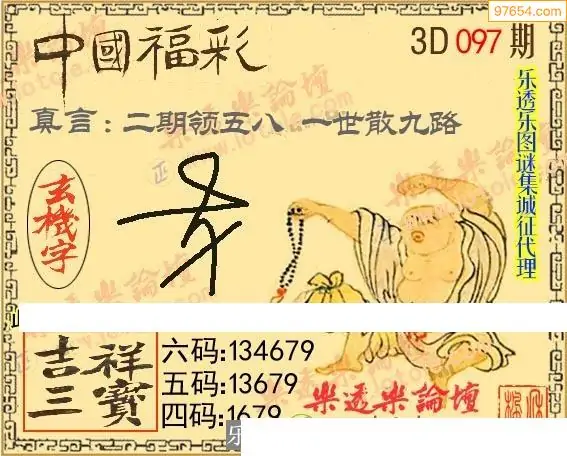 97654.com
中國福彩
3D 097 期
真言：二期领五八 一世散九路
乐透乐图谜集城征代理
玄機字
吉祥三寶
六码:134679
五码:13679
四码:1679
樂透樂論壇